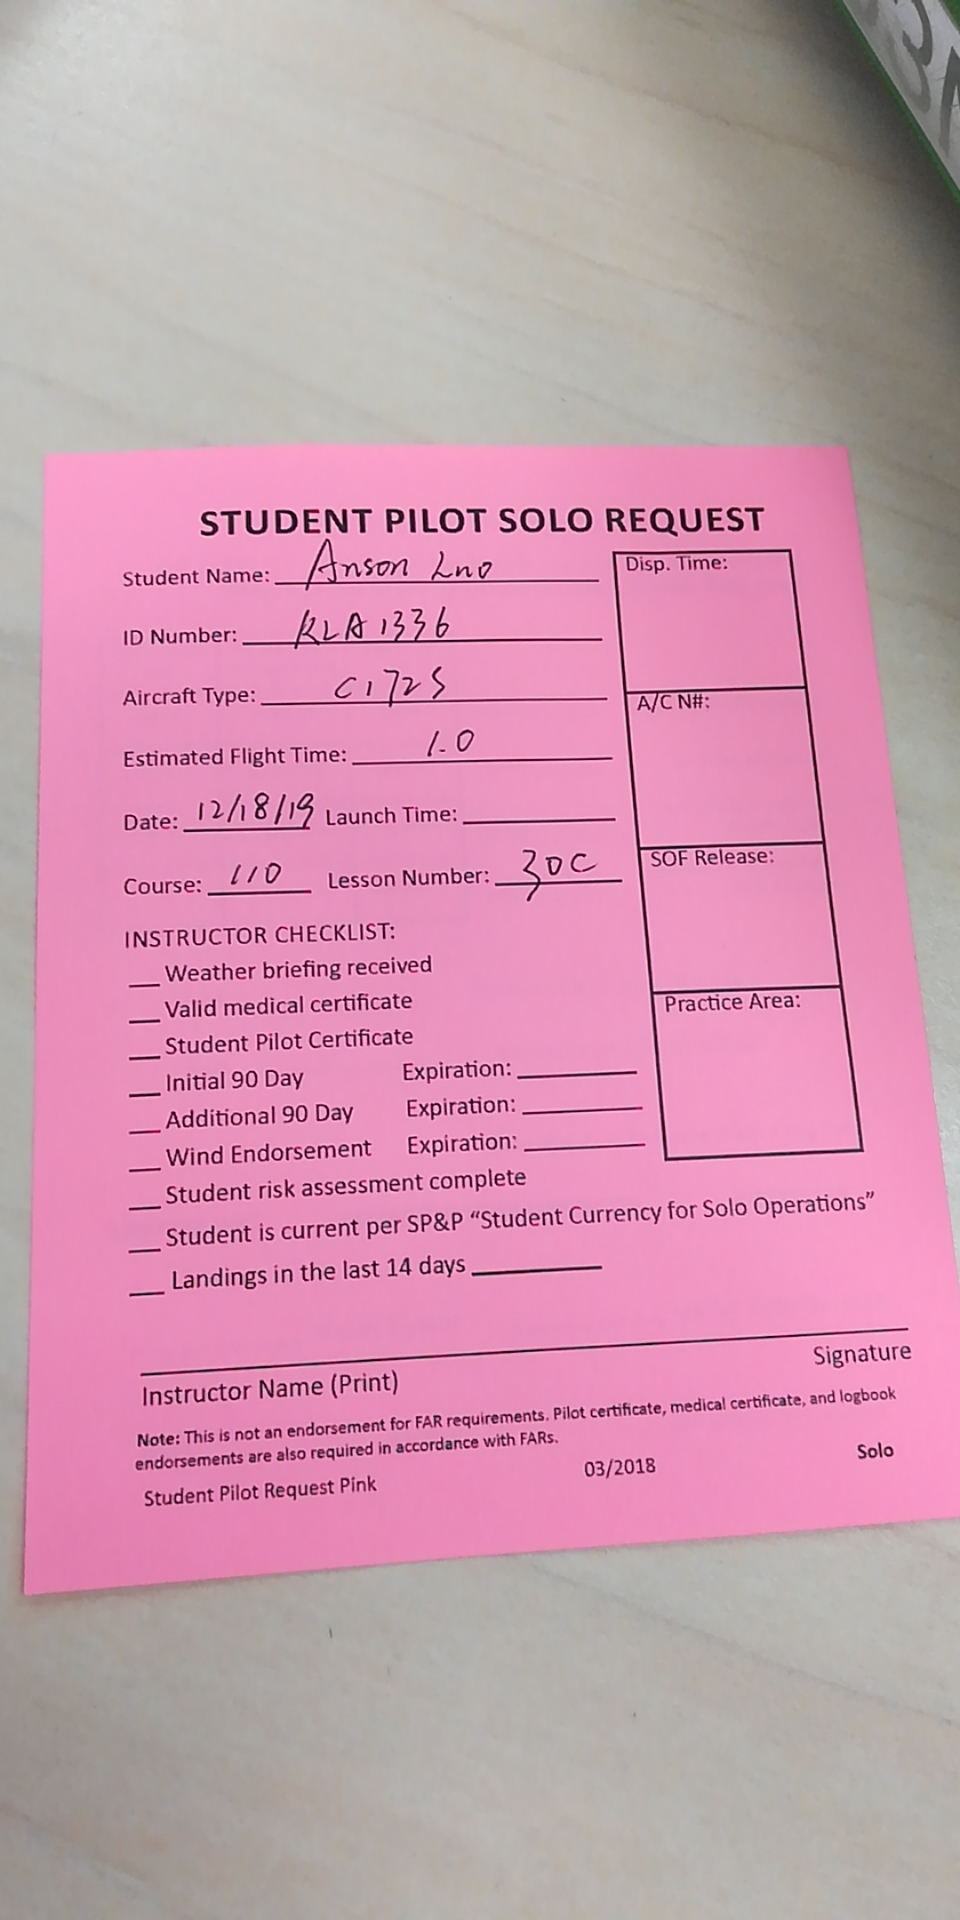 STUDENT PILOT SOLO REQUEST
Student Name: Anson Luo
Disp. Time:
ID Number: KLA 1336
Aircraft Type: C172S
A/C N#:
Estimated Flight Time: 1.0
Date: 12/18/19 Launch Time:
SOF Release:
Course: 110 Lesson Number: 30C
INSTRUCTOR CHECKLIST:
Weather briefing received
Valid medical certificate
Practice Area:
Student Pilot Certificate
Initial 90 Day Expiration:
Additional 90 Day Expiration:
Wind Endorsement Expiration:
Student risk assessment complete
Student is current per SP&P “Student Currency for Solo Operations”
Landings in the last 14 days
Instructor Name (Print) Signature
Note: This is not an endorsement for FAR requirements. Pilot certificate, medical certificate, and logbook
endorsements are also required in accordance with FARs.
Student Pilot Request Pink 03/2018 Solo